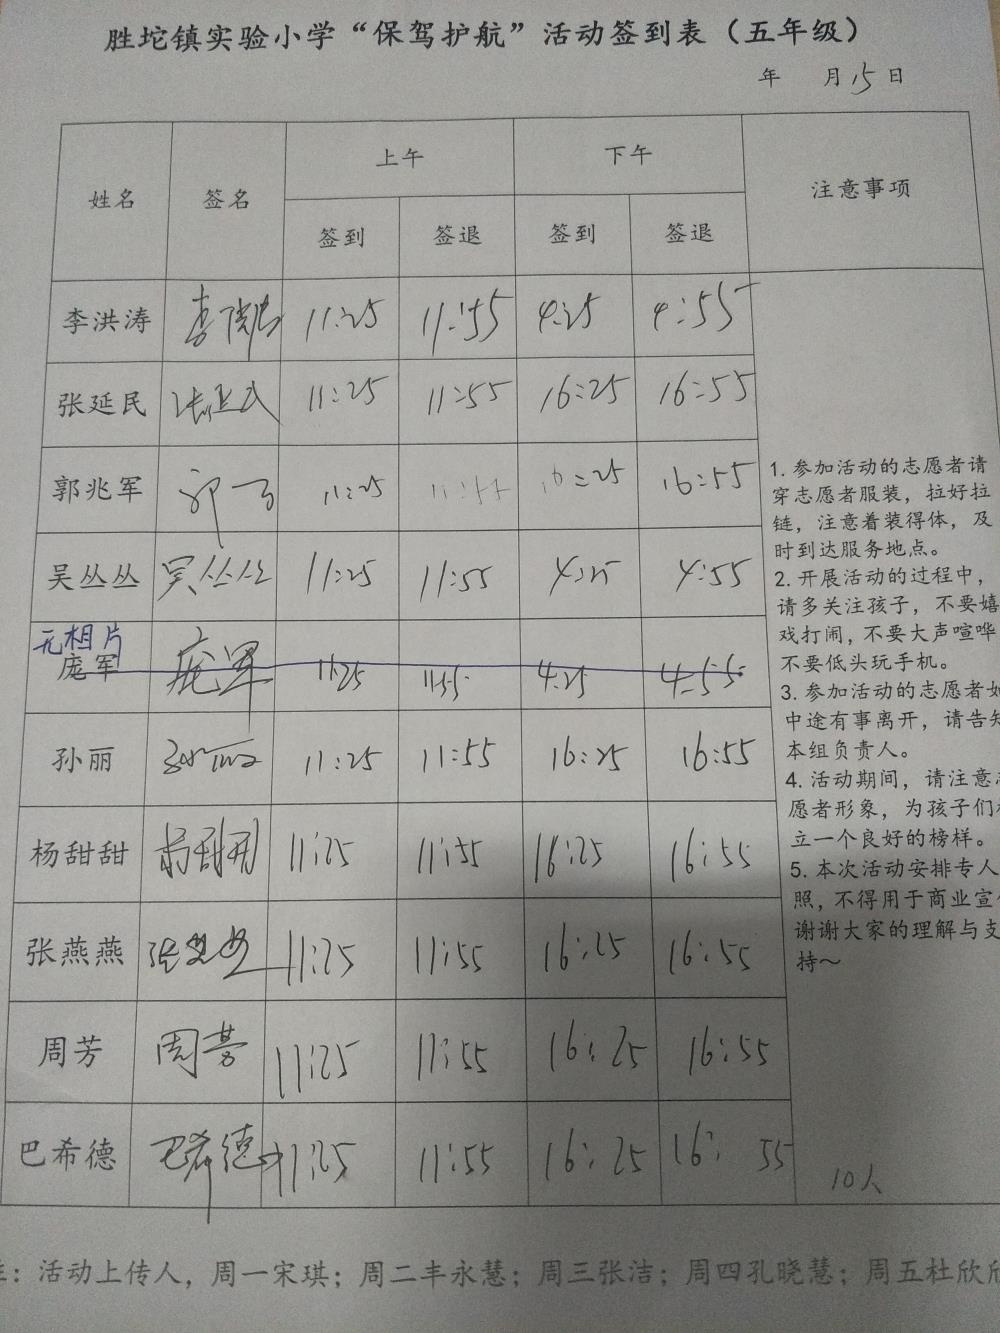 胜坨镇实验小学“保驾护航”活动签到表（五年级）
年 月15日
姓名 签名 上午 下午 注意事项
签到 签退 签到 签退
李洪涛 李洪涛 11:25 11:55 4:25 4:55
张延民 张延民 11:25 11:55 16:25 16:55
郭兆军 11:25 11:55 16:25 16:55
吴丛丛 吴丛丛 11:25 11:55 4:25 4:55
无相片
庞军 庞军 11:25 11:55 4:25 4:55
孙丽 孙丽 11:25 11:55 16:25 16:55
杨甜甜 杨甜甜 11:25 11:55 16:25 16:55
张燕燕 张燕燕 11:25 11:55 16:25 16:55
周芳 周芳 11:25 11:55 16:25 16:55
巴希德 巴希德 11:25 11:55 16:25 16:55
1. 参加活动的志愿者请
穿志愿者服装，拉好拉
链，注意着装得体，及
时到达服务地点。
2. 开展活动的过程中，
请多关注孩子，不要嬉
戏打闹，不要大声喧哗
不要低头玩手机。
3. 参加活动的志愿者如
中途有事离开，请告知
本组负责人。
4. 活动期间，请注意志
愿者形象，为孩子们树
立一个良好的榜样。
5. 本次活动安排专人
照，不得用于商业宣传
谢谢大家的理解与支
持～
10人
注：活动上传人，周一宋琪；周二丰永慧；周三张洁；周四孔晓慧；周五杜欣欣